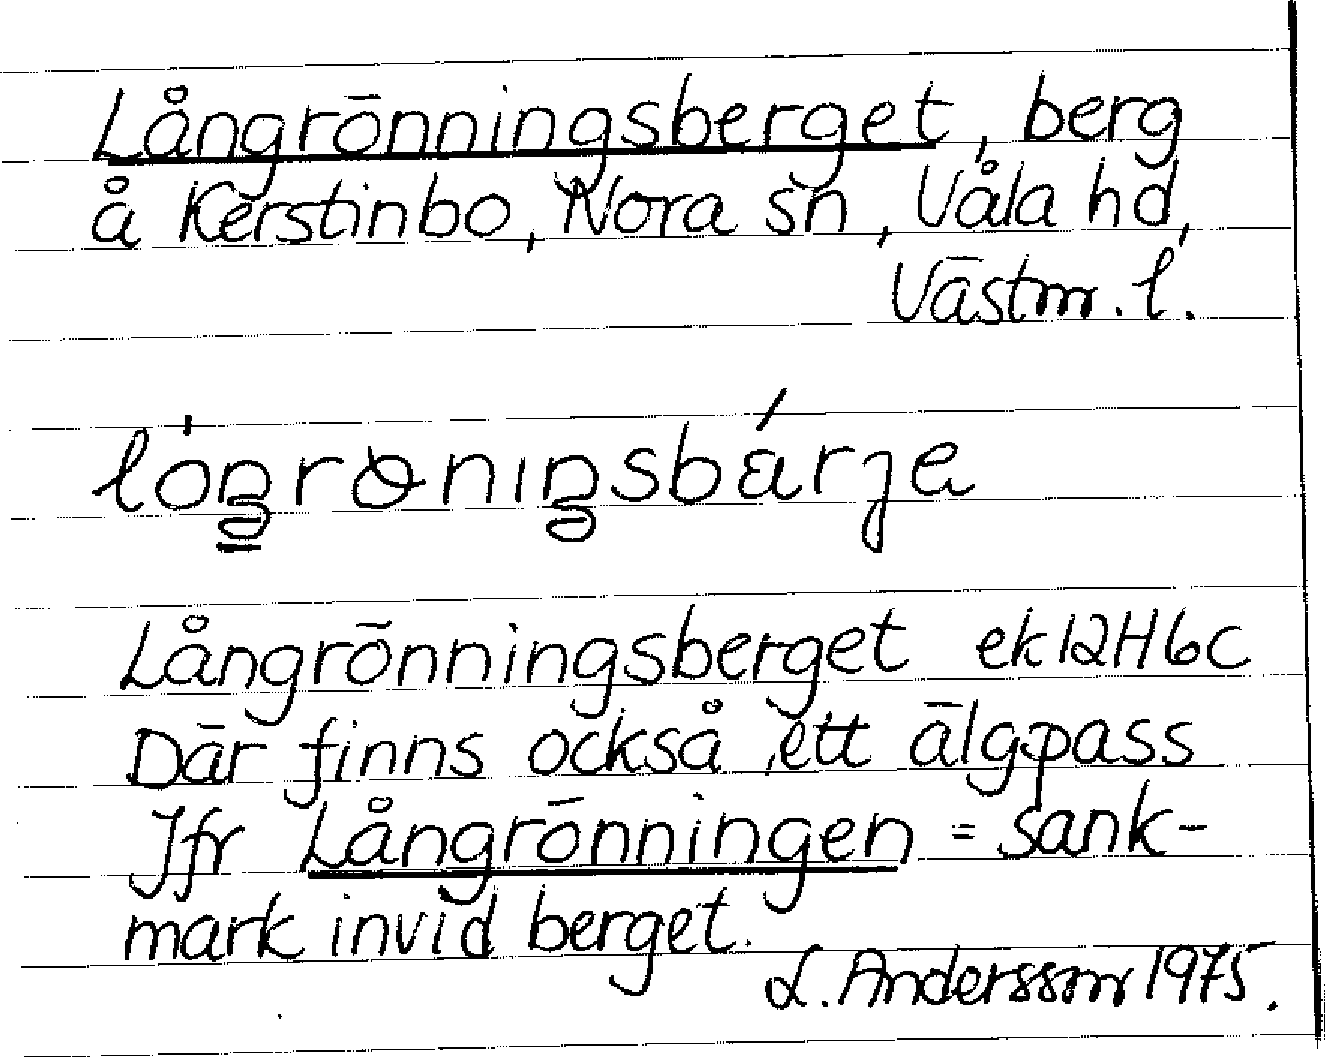 Långrönningsberget, berg
å Kerstinbo, Nora sn, Våla hd,
Västm. l.
lóŋrөnıŋsbárje
Långrönningsberget ek 12H6c
Där finns också ett älgpass
Jfr Långrönningen = sank-
mark invid berget.
L. Andersson 1975.